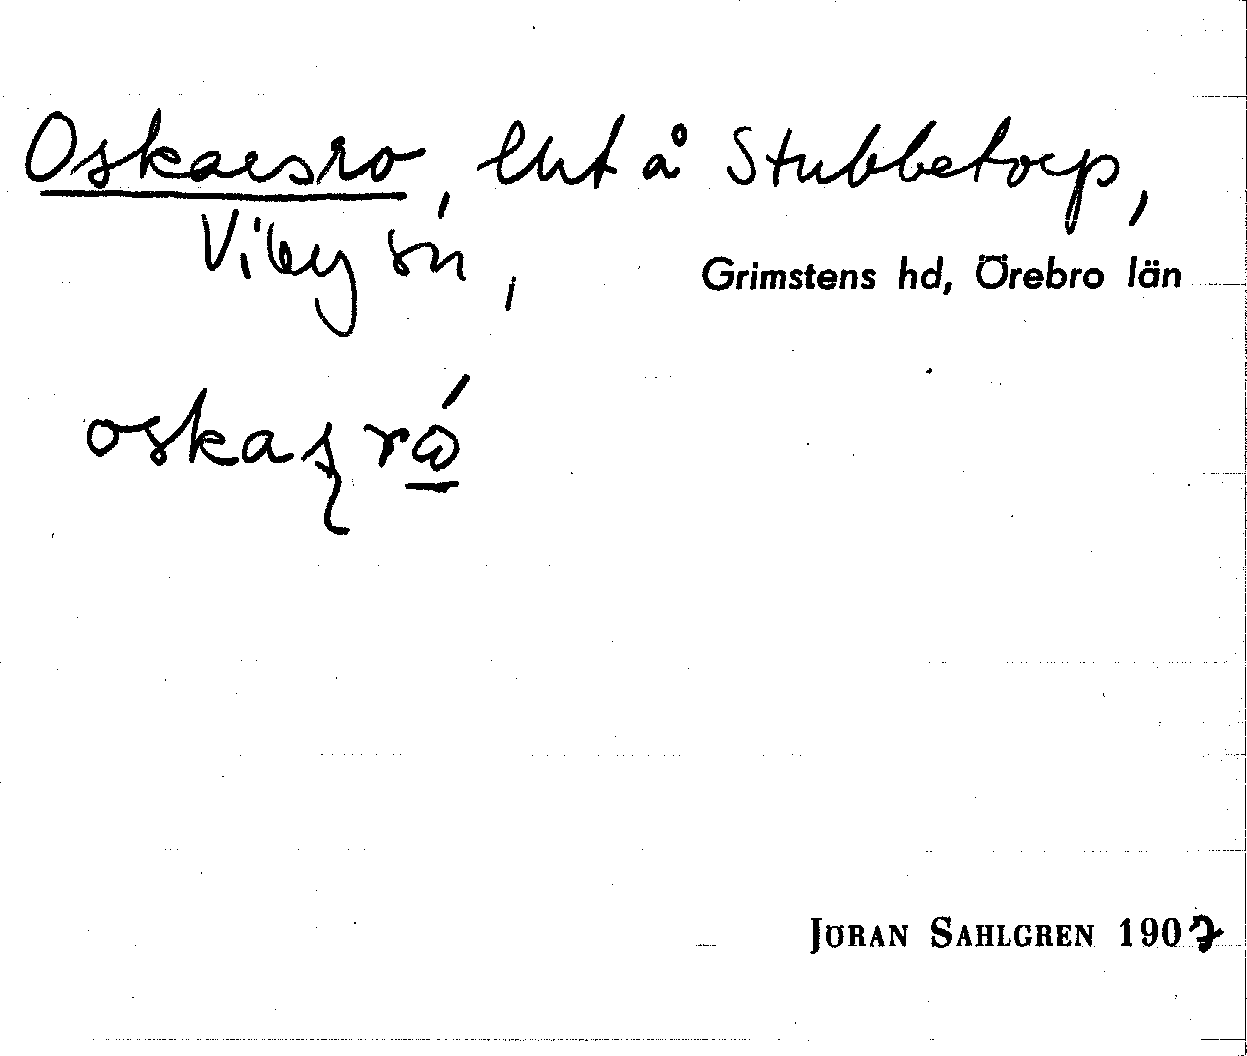 Oskarsro, lht å Stubbetorp,
Viby sn,
Grimstens hd, Örebro län
oskaʂró
JÖRAN SAHLGREN 1907